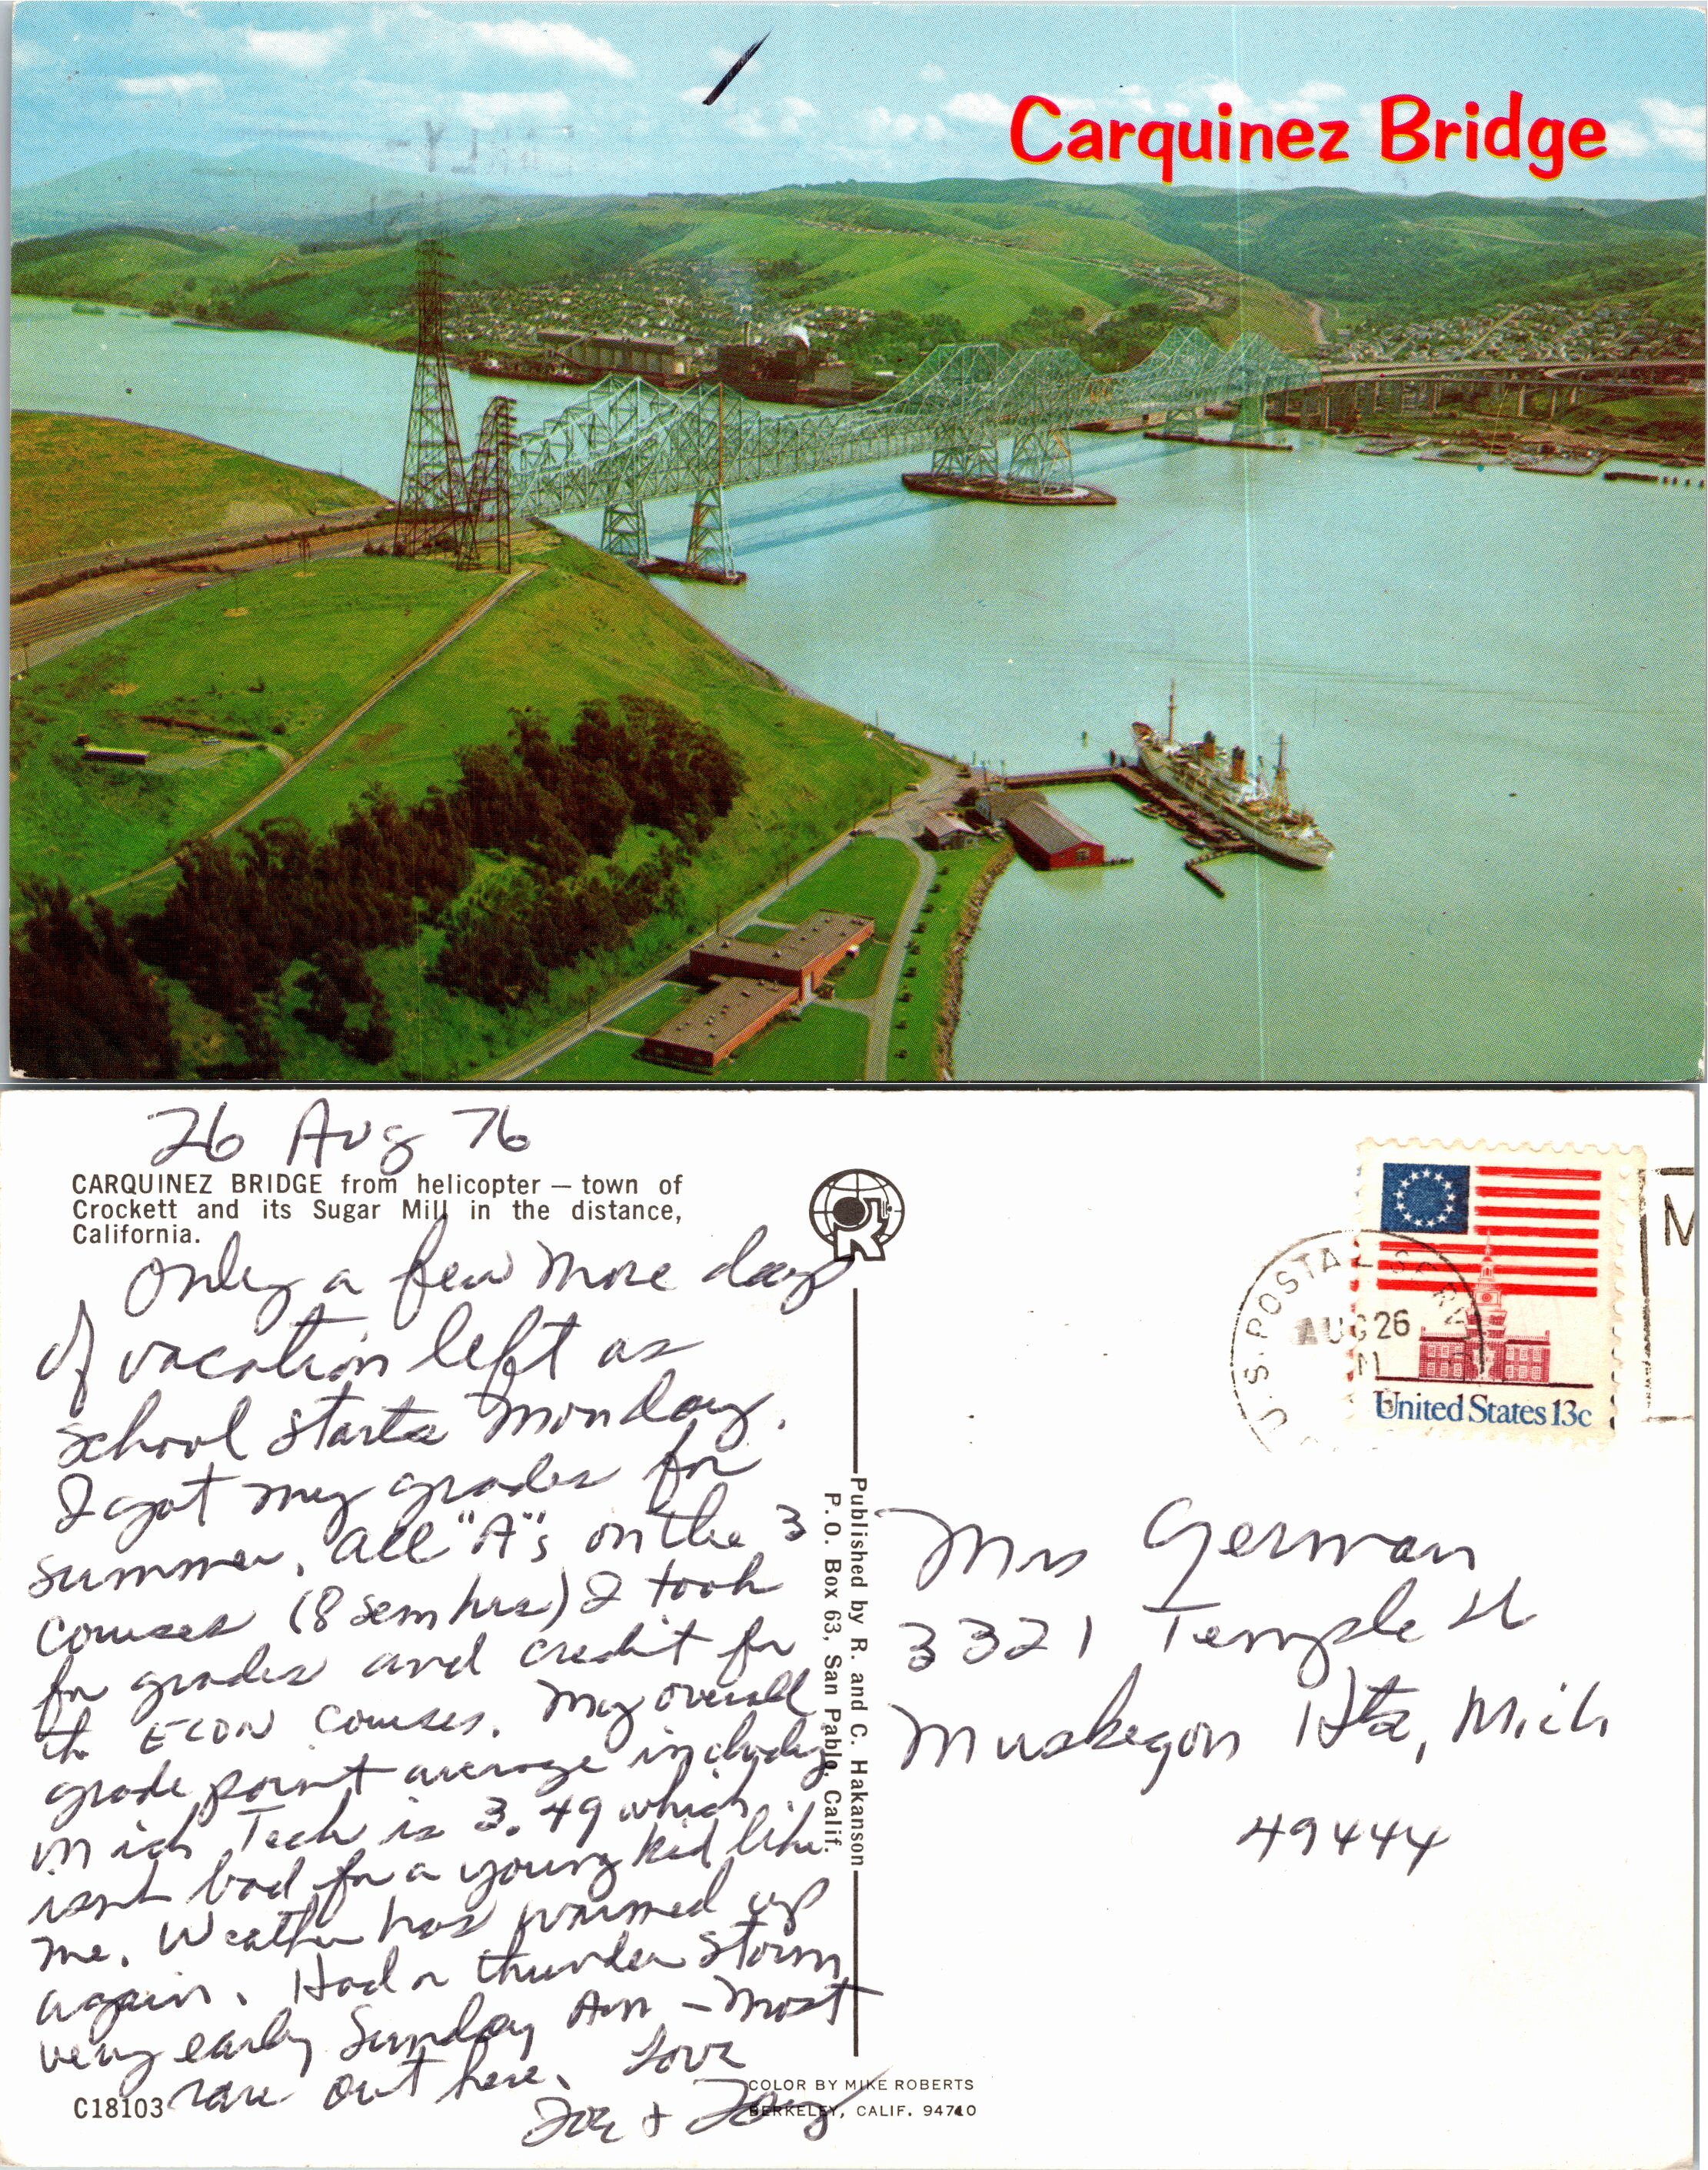 Carquinez Bridge
26 Aug 76
CARQUINEZ BRIDGE from helicopter — town of
Crockett and its Sugar Mill in the distance,
California.
Only a few more days
of vacation left as
school starts Monday.
I got my grades for
summer, all "A"s on the 3
courses (8 sem hrs) I took
for grades and credit for
th ECON courses. My overall
grade point average including
Mich Tech is 3.49 which
isnt bad for a young kid like
me. Weather has warmed up
again. Had a thunder storm
very early Sunday Am - most
rare out here. Love
Joe +
C18103
Published by R. and C. Hakanson
P.O. Box 63, San Pablo, Calif.
COLOR BY MIKE ROBERTS
BERKELEY, CALIF. 94710
U.S. POSTAL SERV
AUG 26
United States 13c
M
Mrs German
3321 Temple St
Muskegon Hts, Mich
49444